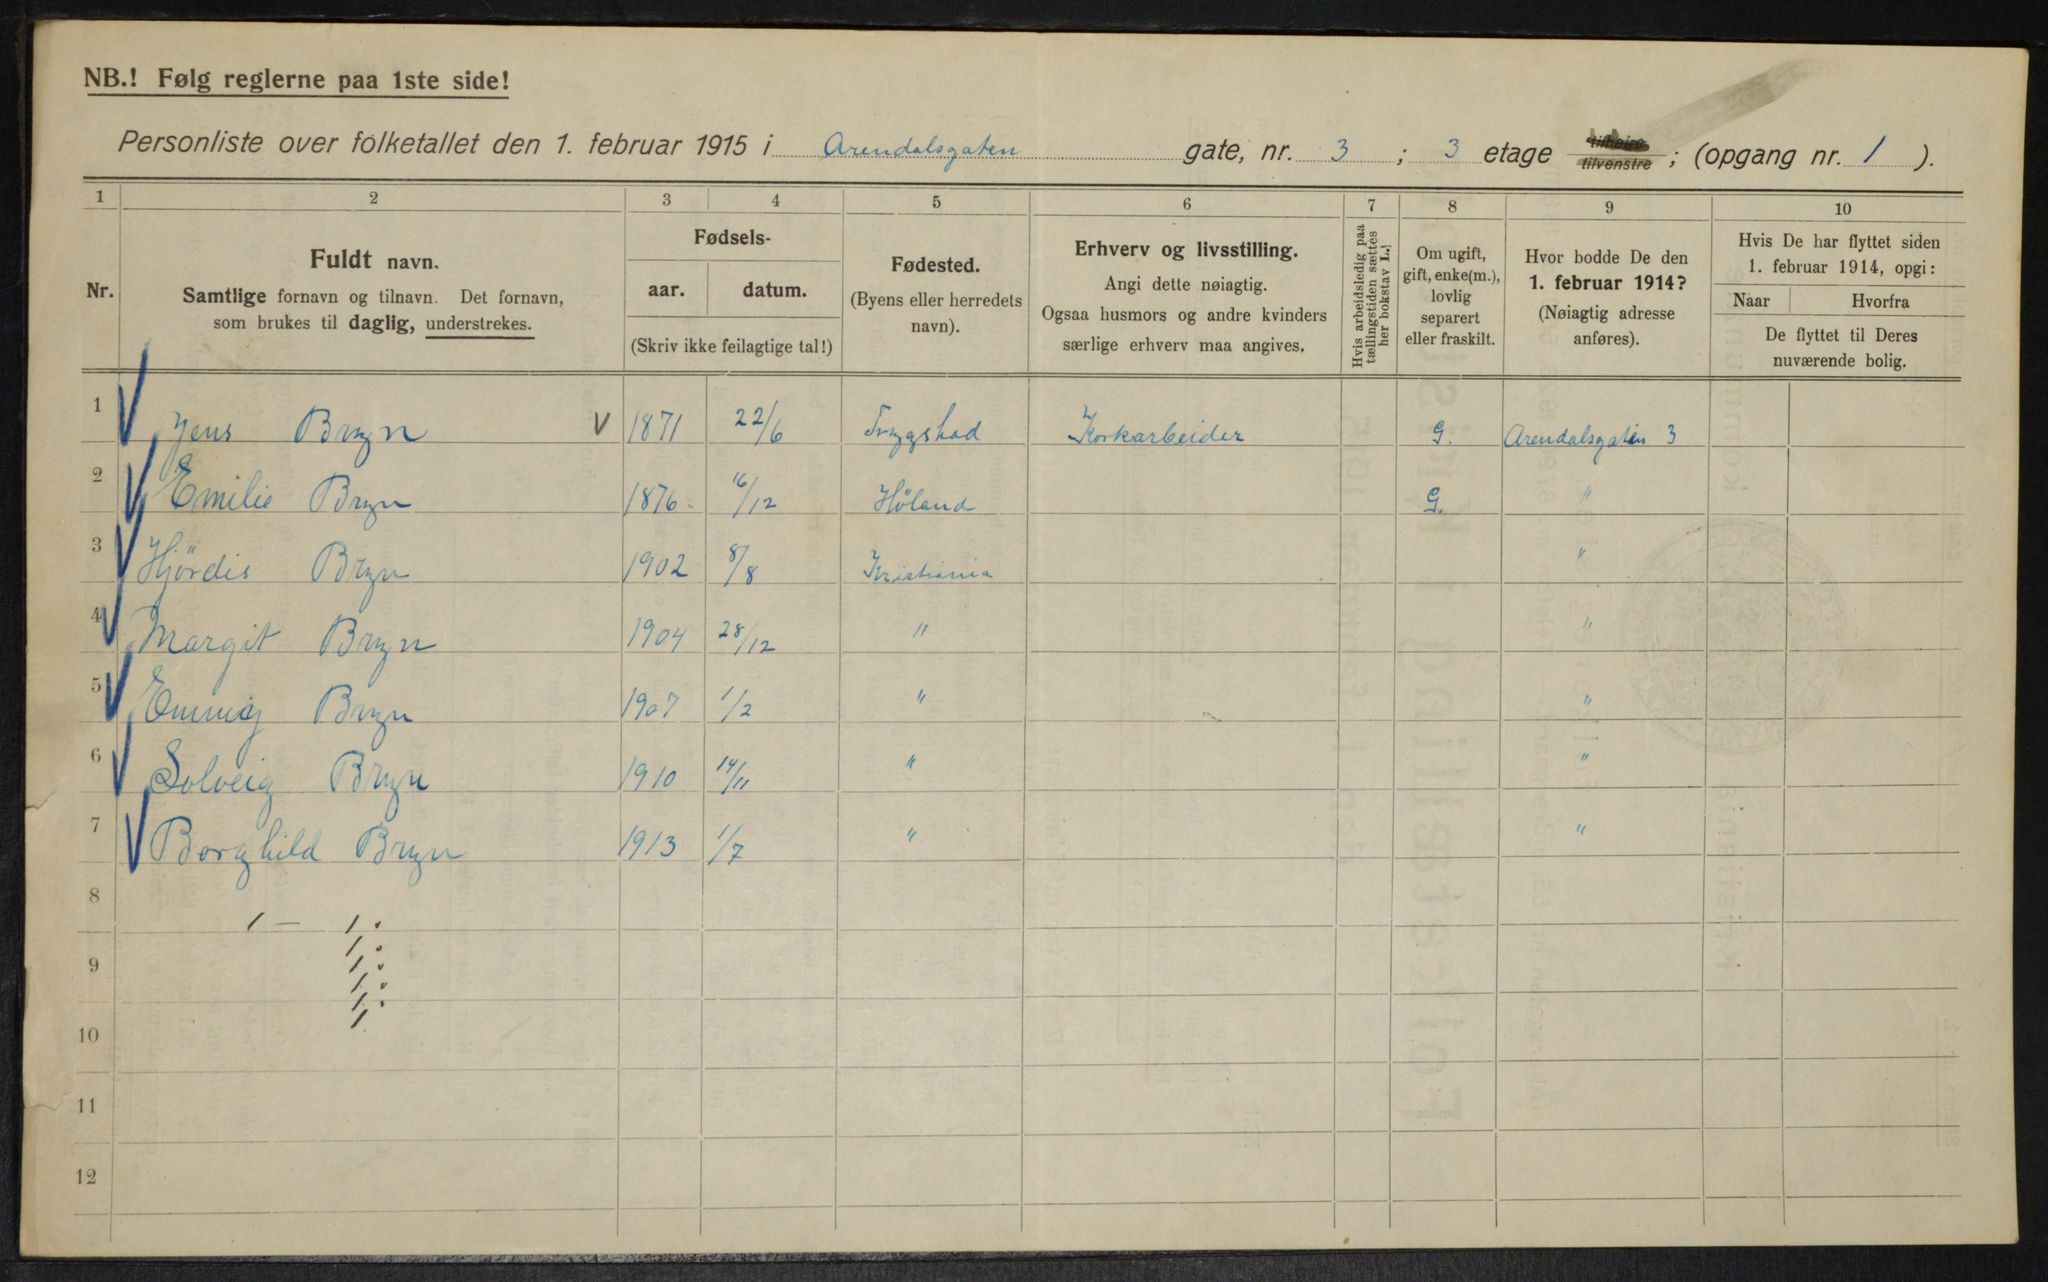 NB.! Følg reglerne paa 1ste side!
Personliste over folketallet den 1. februar 1915 i Arendalsgaten gate, nr. 3 ; 3 etage tilhøire tilvenstre ; (opgang nr. 1 ).
1 2 3 4 5 6 7 8 9 10
Nr.
Fuldt navn.
Samtlige fornavn og tilnavn. Det fornavn,
som brukes til daglig, understrekes.
Fødsels-
aar. datum.
(Skriv ikke feilagtige tal!)
Fødested.
(Byens eller herredets
navn).
Erhverv og livsstilling.
Angi dette nøiagtig.
Ogsaa husmors og andre kvinders
særlige erhverv maa angives.
Hvis arbeidsledig paa
tællingstiden sættes
her bokstav L.!
Om ugift,
gift, enke(m.),
lovlig
separert
eller fraskilt.
Hvor bodde De den
1. februar 1914?
(Nøiagtig adresse
anføres).
Hvis De har flyttet siden
1. februar 1914, opgi:
Naar Hvorfra
De flyttet til Deres
nuværende bolig.
1 Jens Bryn 1871 22/6 Trygstad Korkarbeider G. Arendalsgaten 3
2 Emilie Bryn 1876 16/12 Höland G. "
3 Hjördis Bryn 1902 8/8 Kristiania "
4 Margit Bryn 1904 28/12 " "
5 Emmig Bryn 1907 1/2 " "
6 Solveig Bryn 1910 14/11 " "
7 Borghild Bryn 1913 1/7 " "
8
9
10
11
12